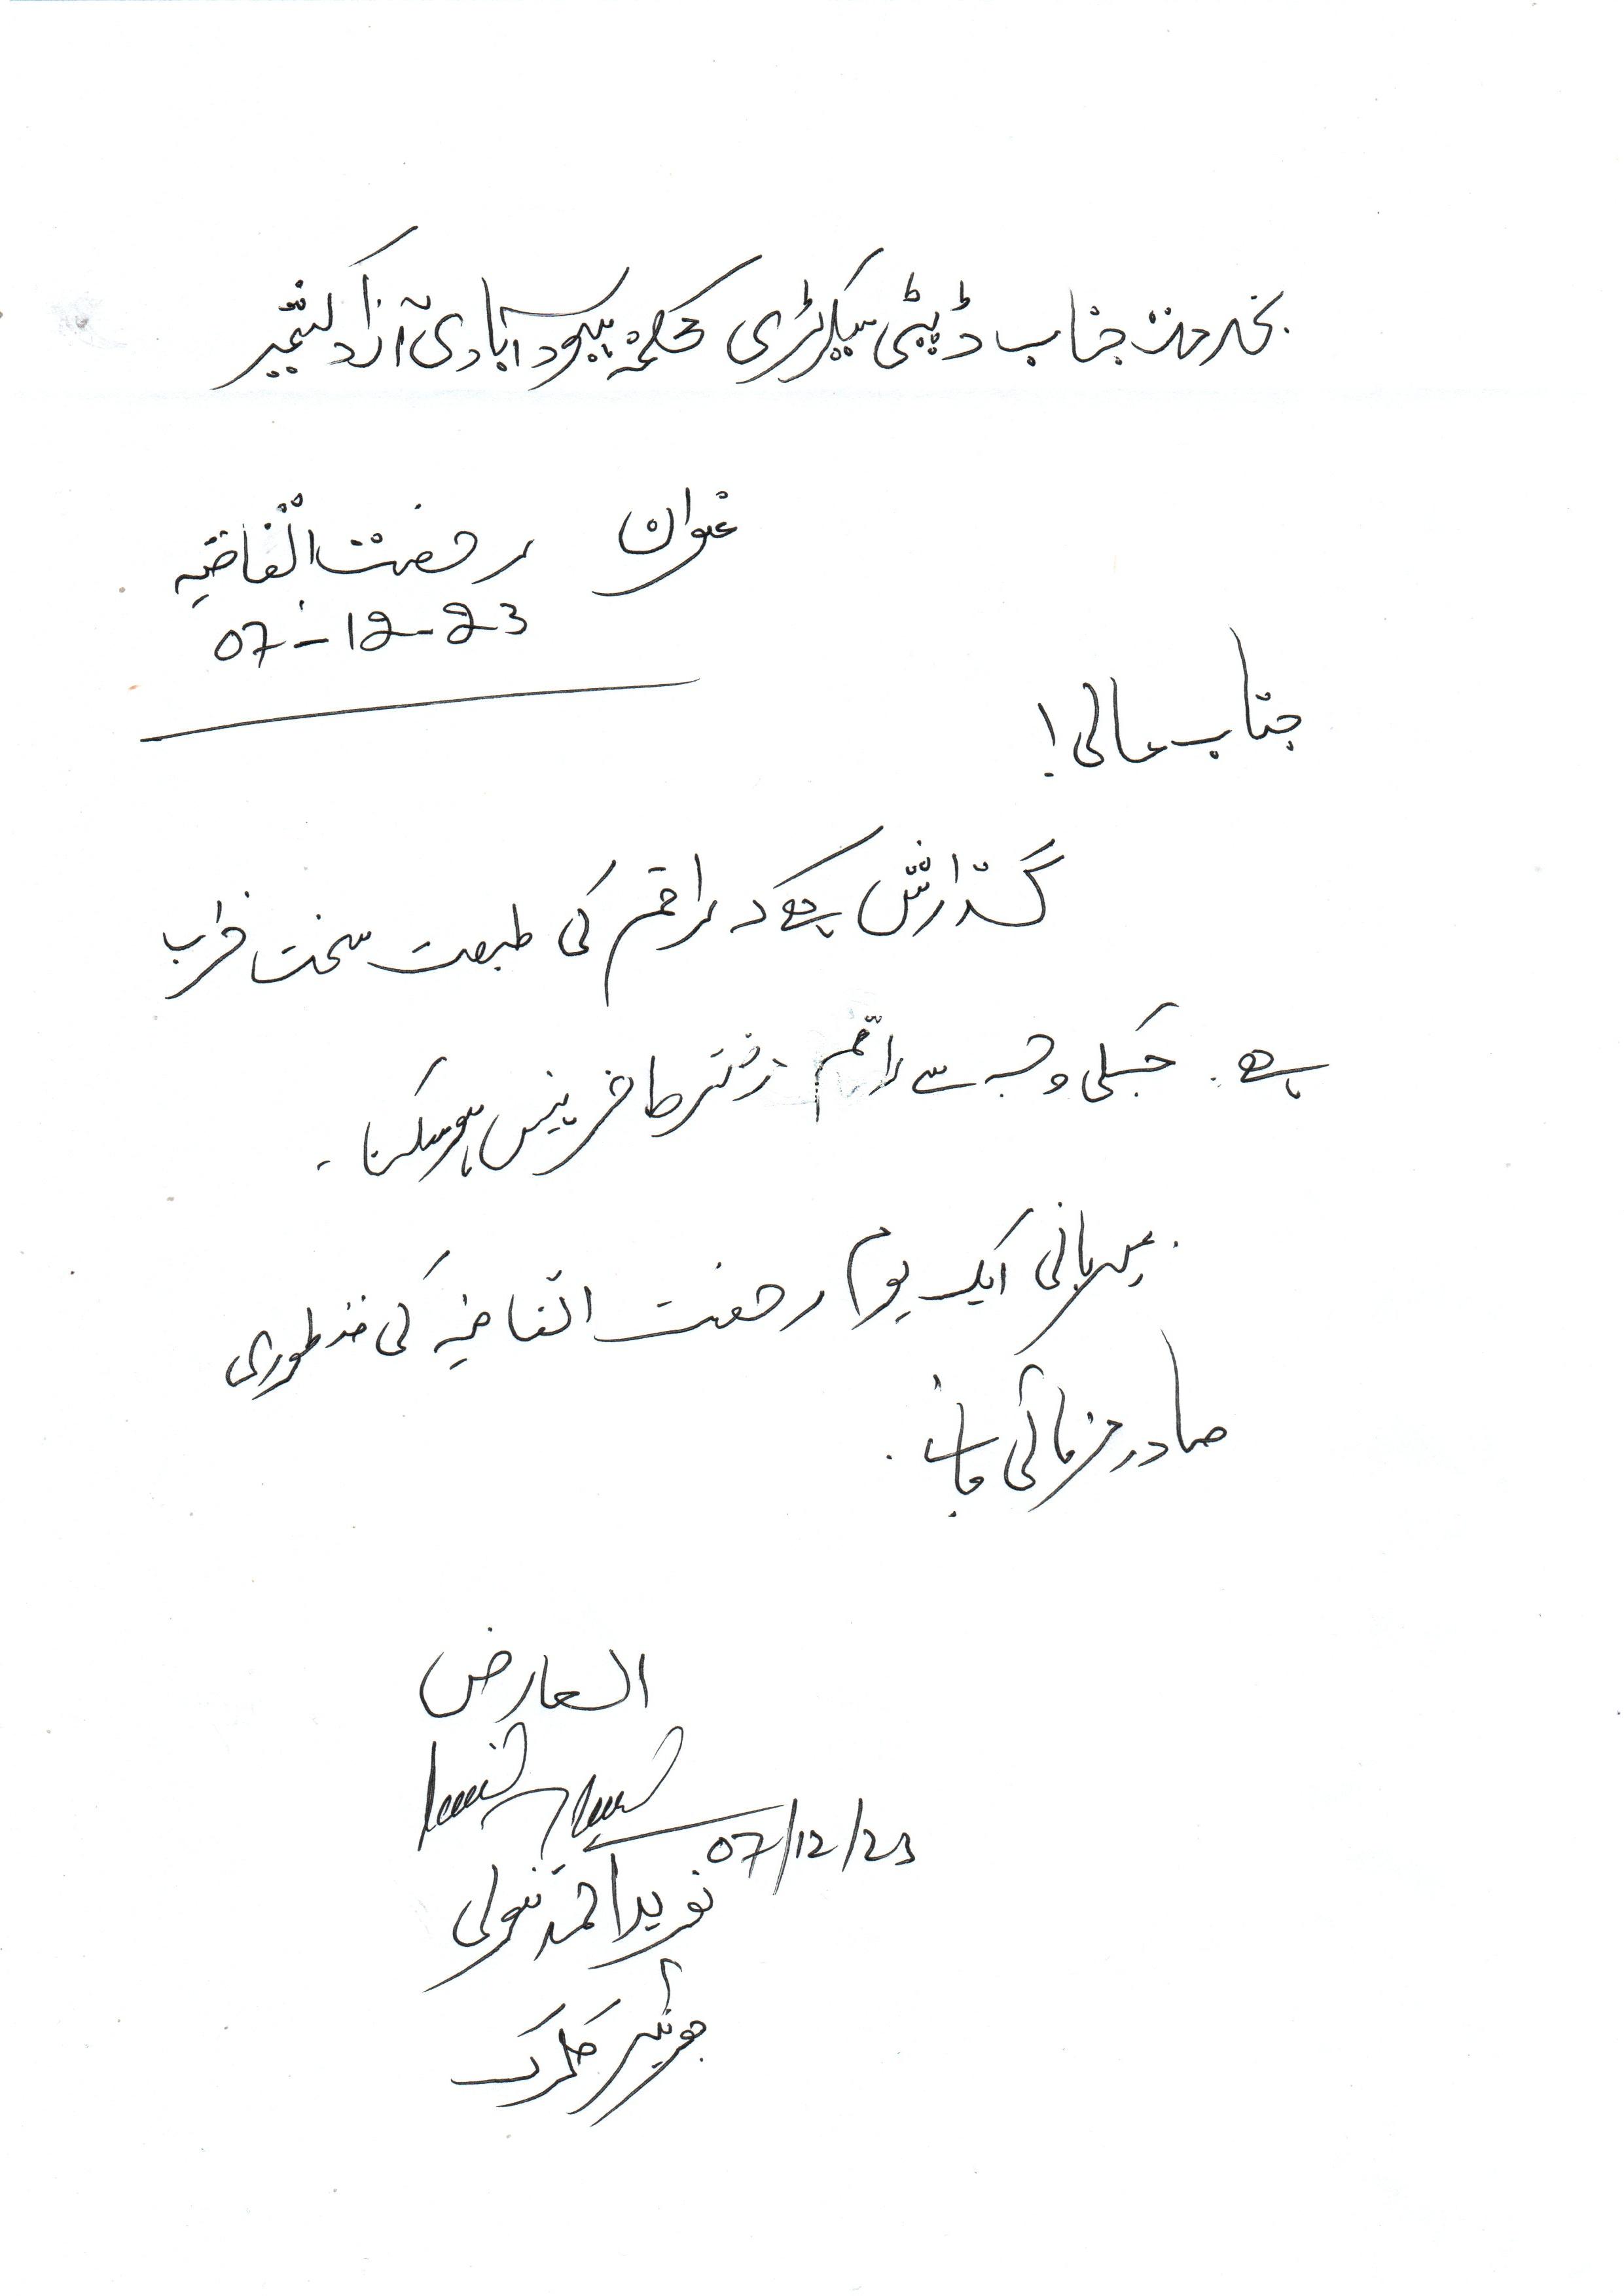 بخدمت جناب ڈپٹی سیکرٹری محکمہ بہبود آبادی آزاد کشمیر
عنوان رخصت اتفاقیہ
07-12-23
جناب عالی!
گذارش ہے کہ راقم کی طبعیت سخت خراب
ہے۔ جسکی وجہ سے راقم دفتر حاضر نہیں ہو سکتا۔
مہربانی ایک یوم رخصت اتفاقیہ کی منظوری
صادر فرمائی جائے۔
العارض
07/12/23
نوید احمد
جونیئر کلرک